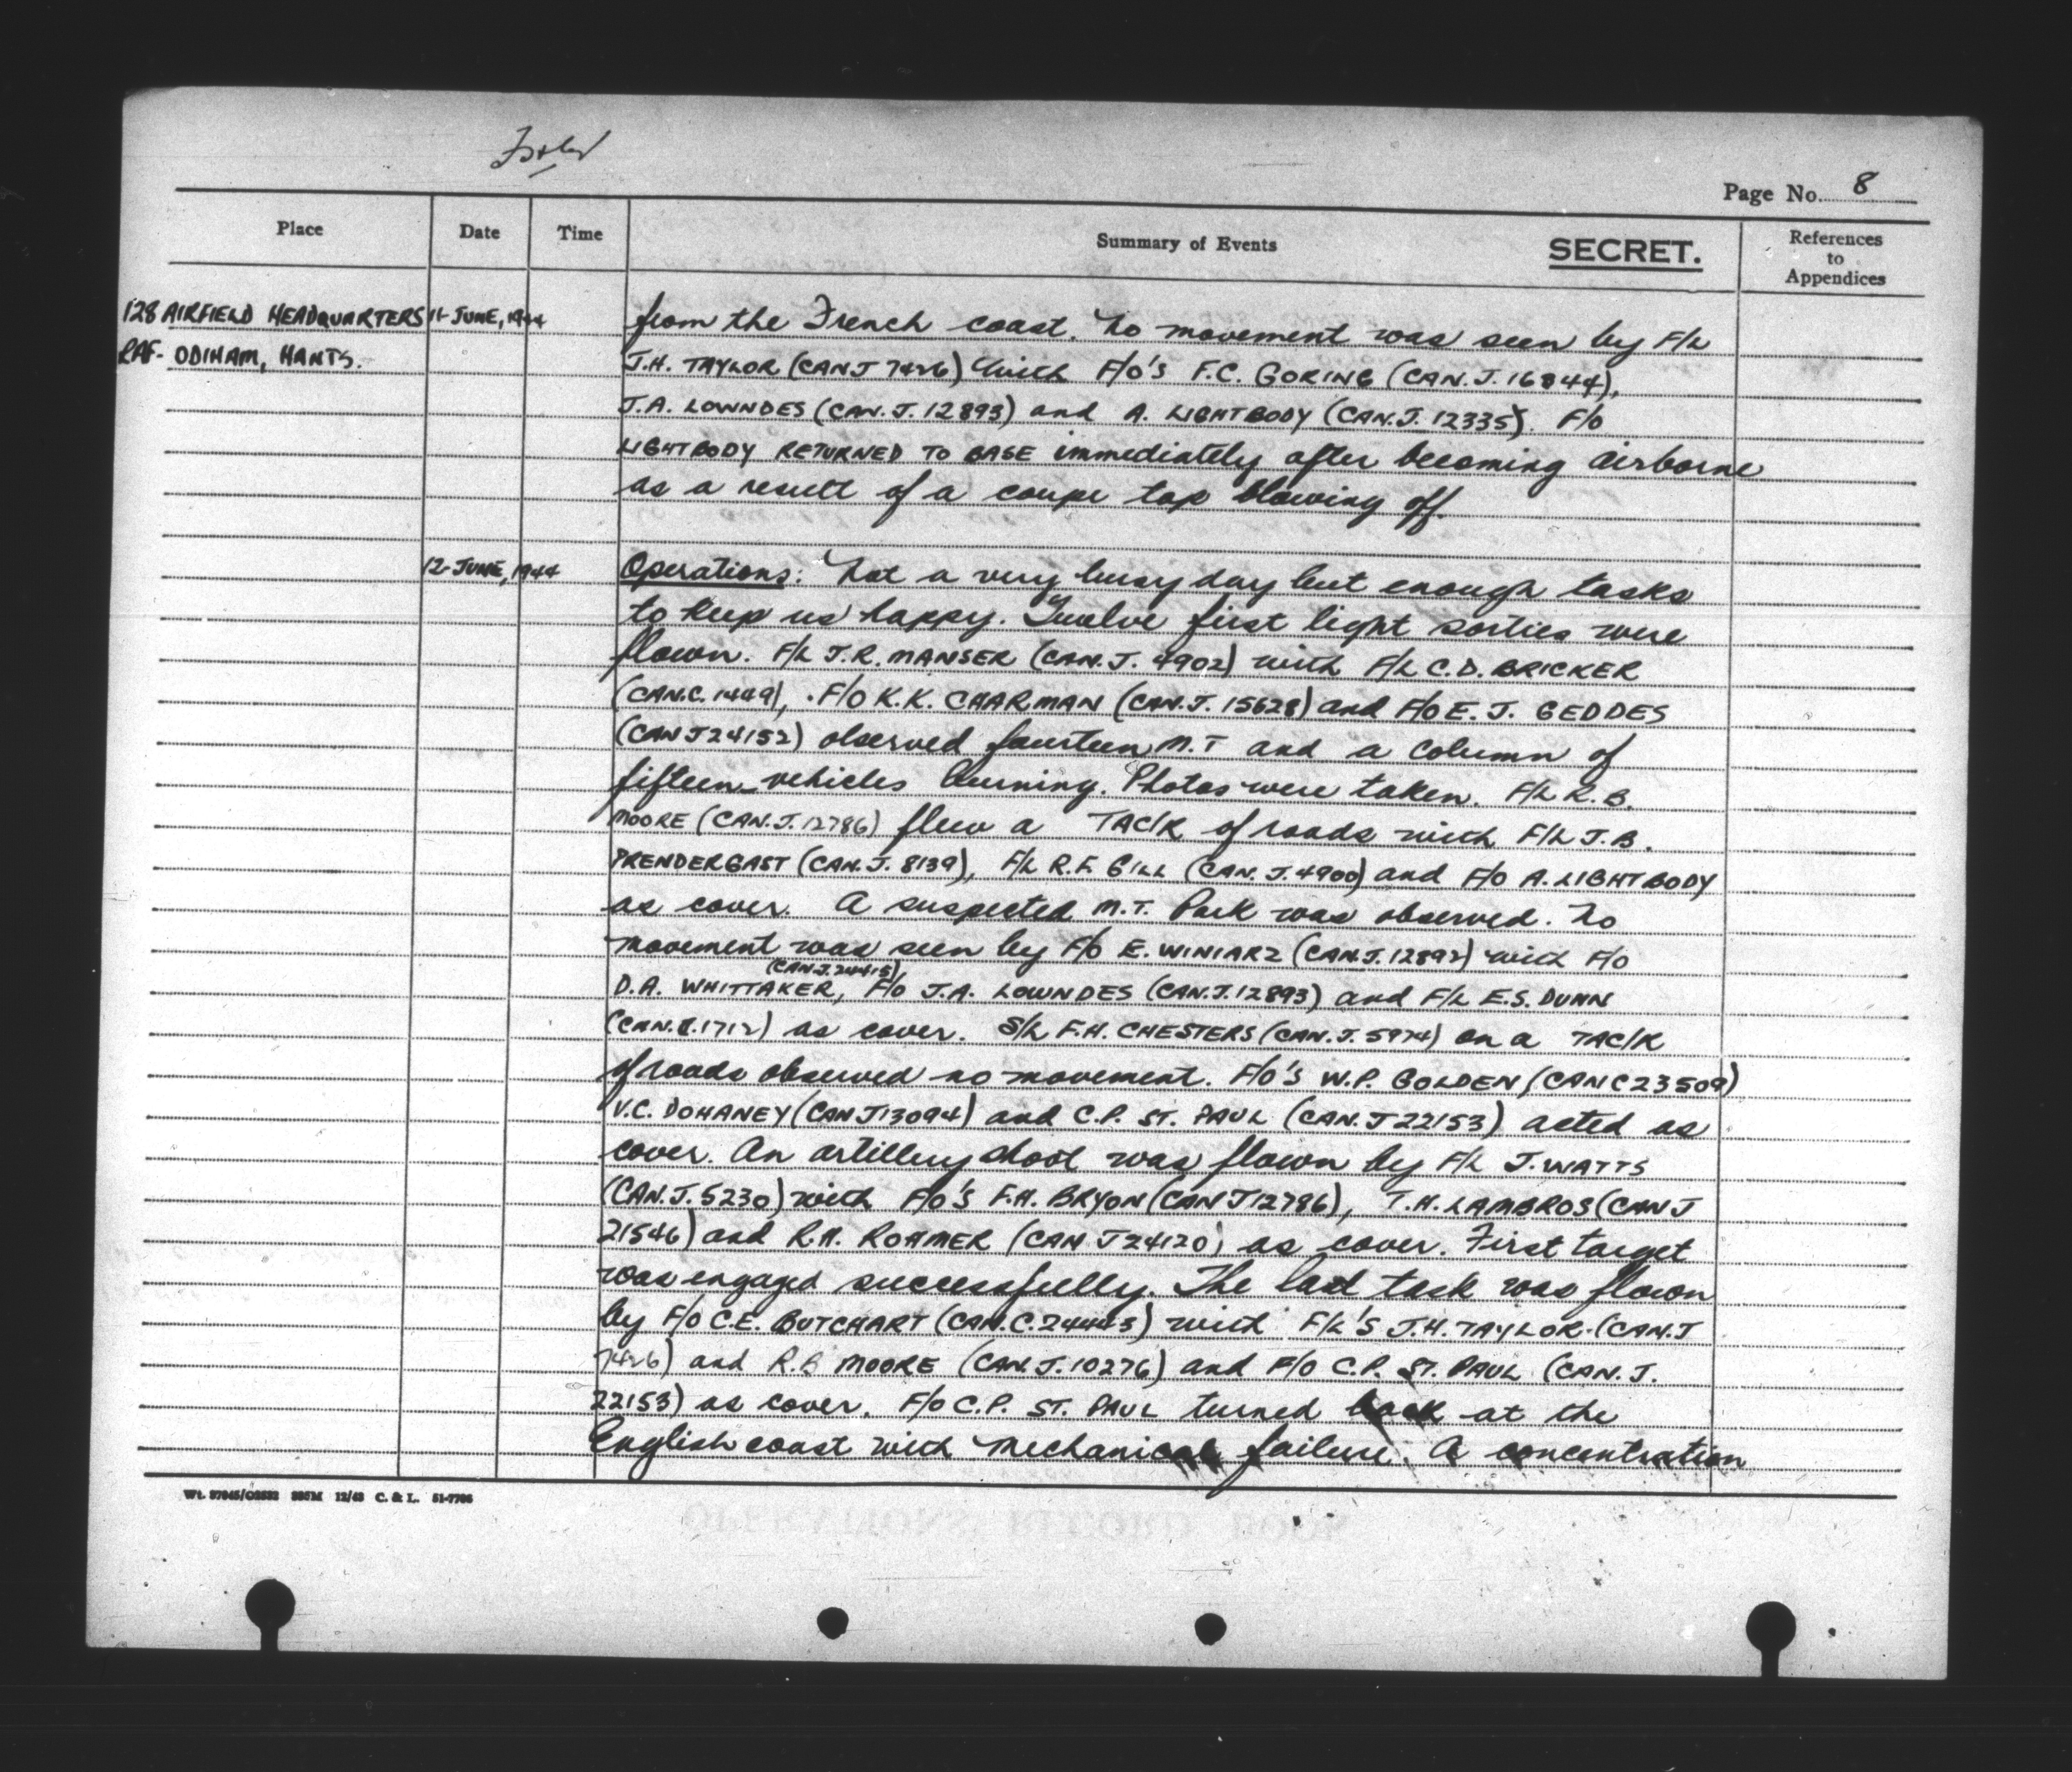 Page No. 8
Place Date Time Summary of Events SECRET. References to Appendices
128 AIRFIELD HEADQUARTERS 11-JUNE, 1944 from the French coast. No movement was seen by F/L
RAF- ODIHAM, HANTS. J.H. TAYLOR (CAN J 7426) with F/O'S F.C. GORING (CAN. J. 16844),
J.A. LOWNDES (CAN. J. 12893) and A. LIGHTBODY (CAN.J. 12335). F/O
LIGHTBODY RETURNED TO BASE immediately after becoming airborne
as a result of a coupe top blowing off.
12-JUNE, 1944 Operations: Not a very busy day but enough tasks
to keep us happy. Twelve first light sorties were
flown. F/L J.R. MANSER (CAN. J. 4902) with F/L C.D. BRICKER
(CAN.C. 1449), F/O K.K. CHARMAN (CAN. J. 15628) and F/O E. J. GEDDES
(CAN J 24152) observed fourteen M.T and a column of
fifteen vehicles burning. Photos were taken. F/L R.B.
MOORE (CAN. J. 12786) flew a TAC/R of roads with F/L J.B.
PRENDERGAST (CAN. J. 8139), F/L R.F. GILL (CAN. J. 4900) and F/O A. LIGHTBODY
as cover. A suspected M.T. Park was observed. No
movement was seen by F/O E. WINIARZ (CAN.J. 12892) with F/O
D.A. WHITTAKER (CAN.J. 24415), F/O J.A. LOWNDES (CAN.J. 12893) and F/L E.S. DUNN
(CAN.C.1712) as cover. S/L F.H. CHESTERS (CAN. J. 5974) on a TAC/R
of roads observed no movement. F/O'S W.P. GOLDEN (CAN C 23509)
V.C. DOHANEY (CAN J13094) and C.P. ST. PAUL (CAN. J 22153) acted as
cover. An artillery shoot was flown by F/L J. WATTS
(CAN. J. 5230) with F/O'S F.H. BRYON (CAN J12786), T.H. LAMBROS (CAN J
21546) and R.H. ROHMER (CAN J 24120) as cover. First target
was engaged successfully. The last task was flown
by F/O C.E. BUTCHART (CAN. C. 24443) with F/L'S J.H. TAYLOR (CAN. J
7426) and R.B MOORE (CAN. J. 10276) and F/O C.P. ST. PAUL (CAN. J.
22153) as cover. F/O C.P. ST. PAUL turned back at the
English coast with mechanical failure. A concentration
C. & L.